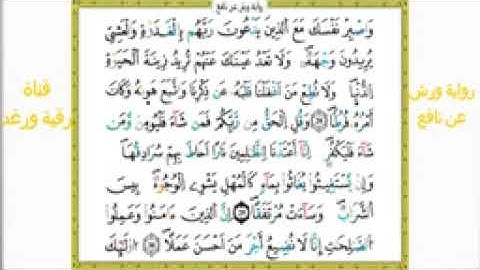 رواية ورش عن نافع
وَاصْبِرْ نَفْسَكَ مَعَ الَذِينَ يَدْعُونَ رَبَّهُم بِالْغَدَوٰةِ وَالْعَشِيِّ
يُرِيدُونَ وَجْهَهُۥ وَلَا تَعْدُ عَيْنَٰكَ عَنْهُمْ تُرِيدُ زِينَةَ الْحَيَوٰةِ
الدُّنْي۪ا وَلَا تُطِعْ مَنَ اَغْفَلْنَا قَلْبَهُۥ عَن ذِكْرِنَا وَاتَّبَعَ هَو۪يٰهُ وَكَانَ
أَمْرُهُۥ فُرُطاٗ وَقُلِ الْحَقُّ مِن رَّبِّكُمْ فَمَن شَآءَ فَلْيُومِن وَّمَن
شَآءَ فَلْيَكْفُرِ اِنَّآ أَعْتَدْنَا لِلظَّٰلِمِينَ نَاراً اَحَاطَ بِهِمْ سُرَادِقُهَا
وَإِنْ يَّسْتَغِيثُوا يُغَاثُوا بِمَآءٖ كَالْمُهْلِ يَشْوِے الْوُجُوهَ بِيسَ
اَلشَّرَابُ وَسَآءَتْ مُرْتَفَقاً اِنَّ الذِينَ ءَامَنُوا وَعَمِلُوا
الصَّٰلِحَٰتِ إِنَّا لَا نُضِيعُ أَجْرَ مَنَ اَحْسَنَ عَمَلاً اُوْلَٰٓئِكَ
رواية ورش
عن نافع
قناة
رقية ورغد